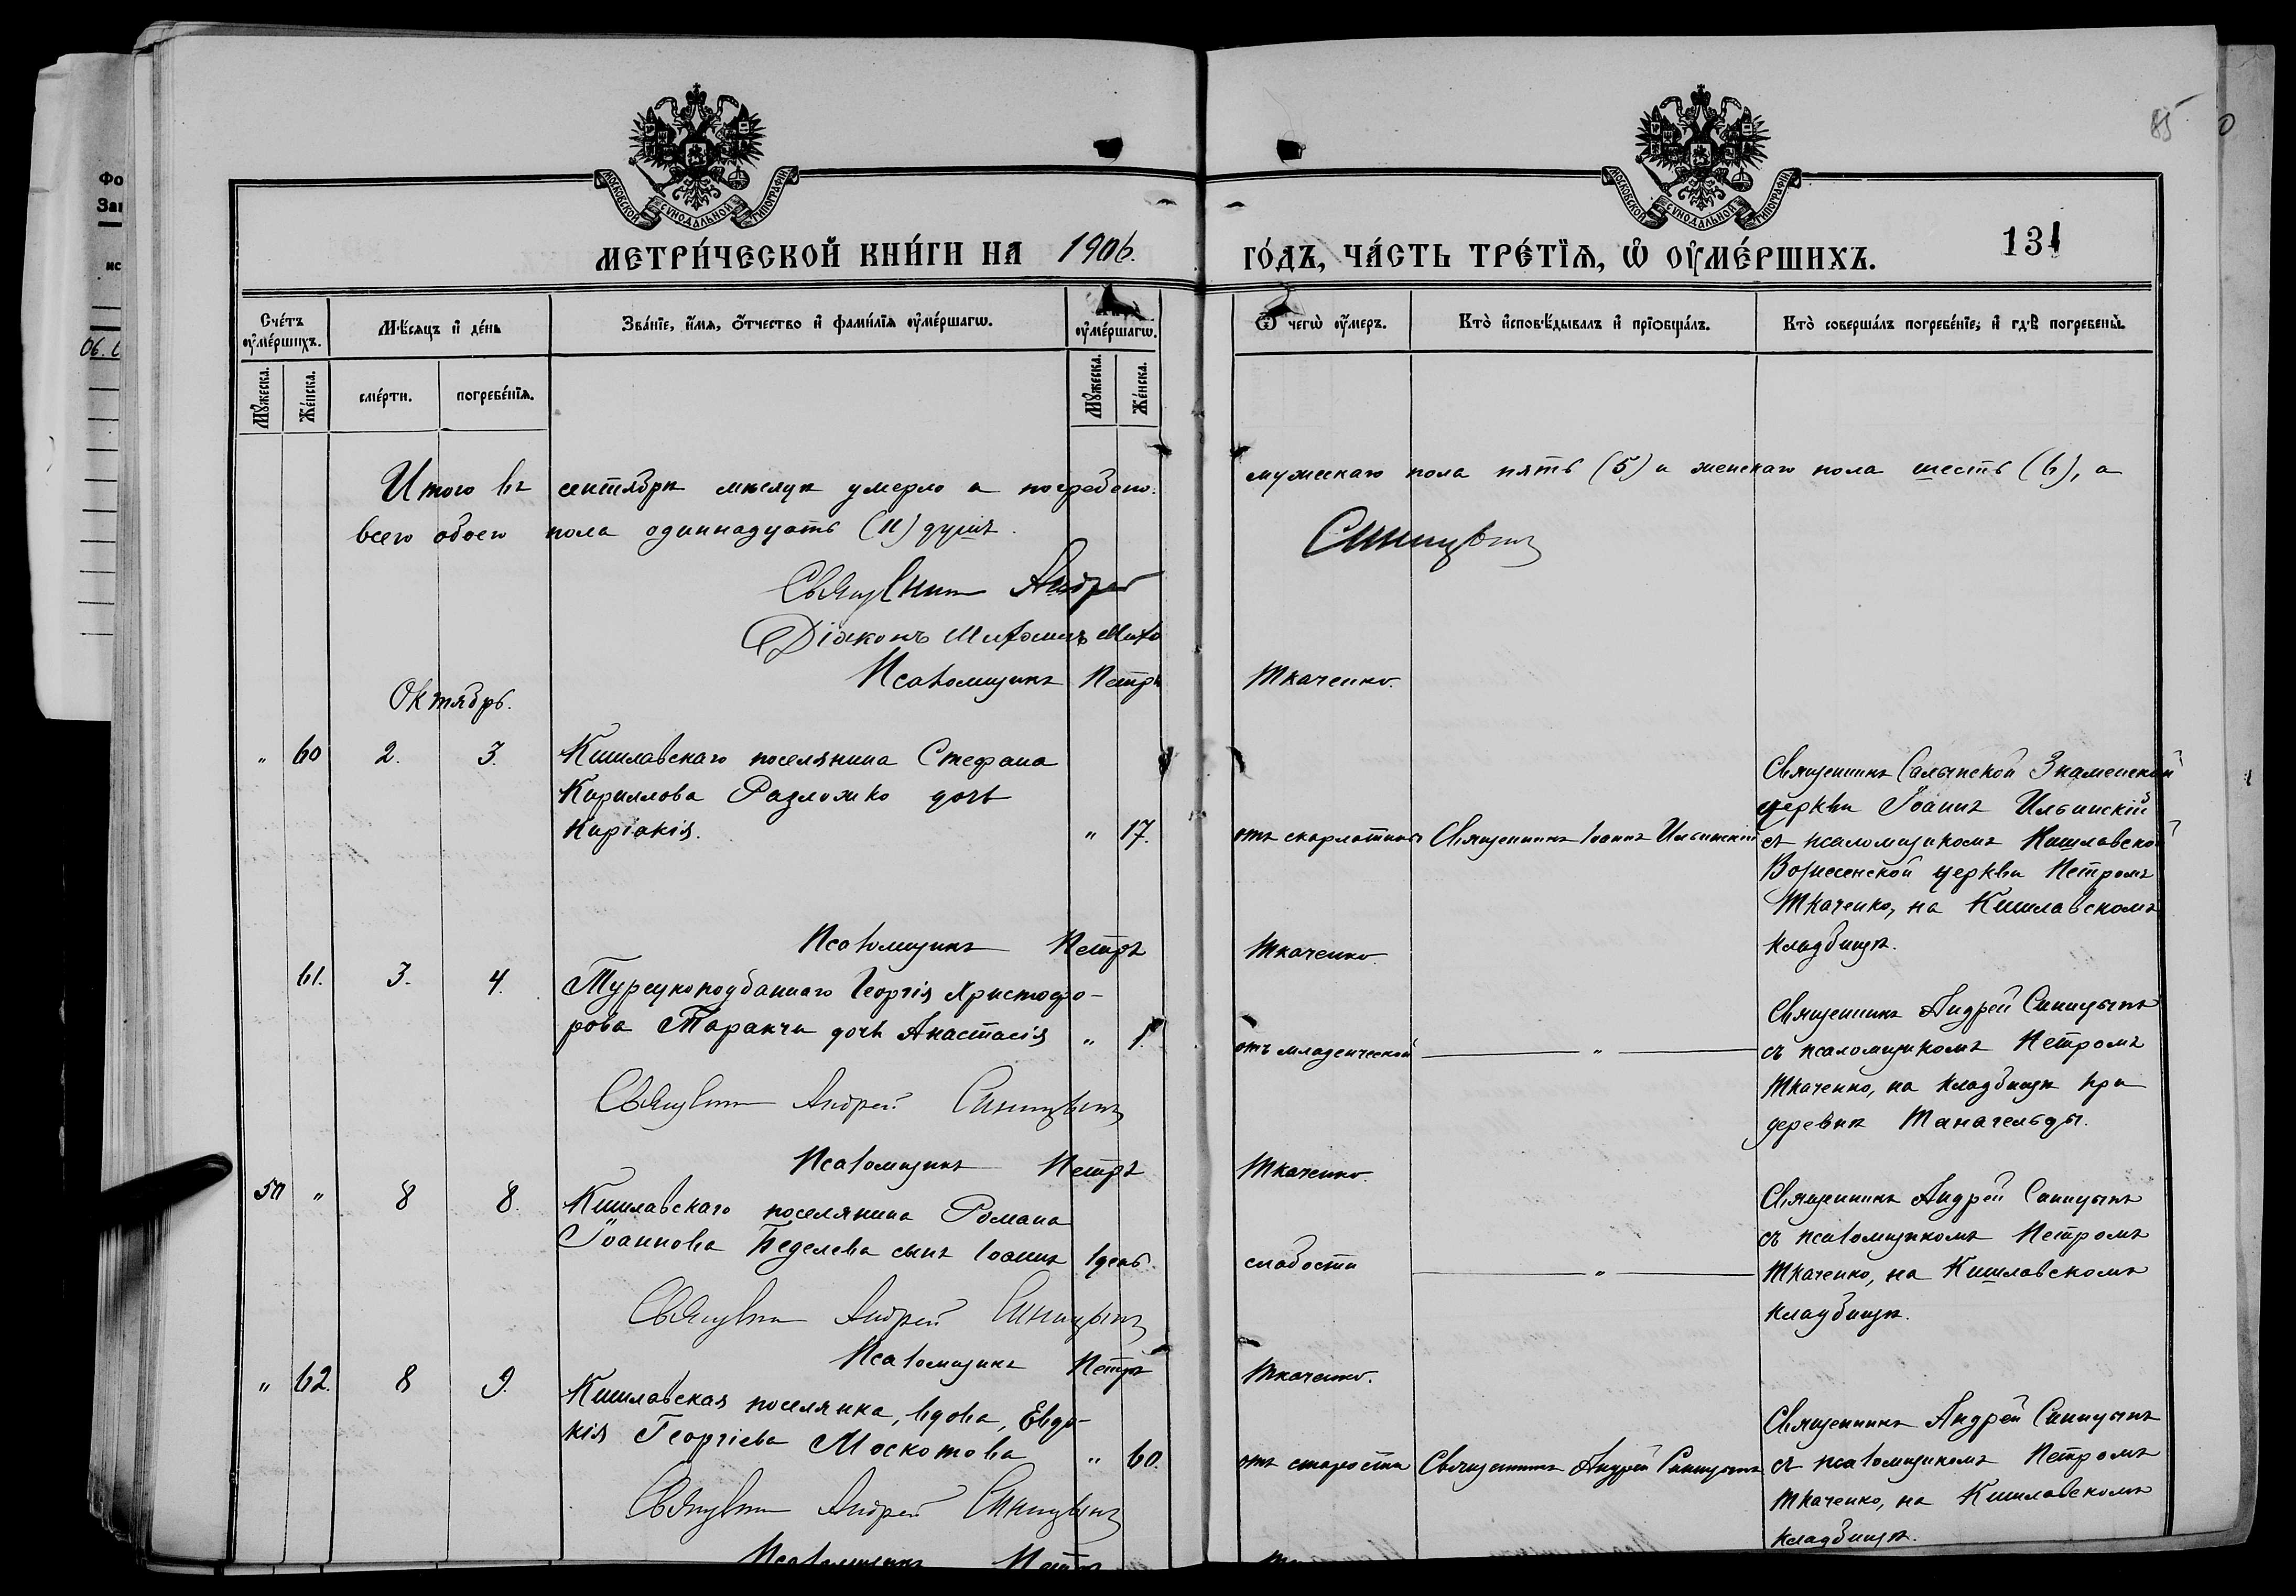 МОСКОВСКОЙ СѴНОДАЛЬНОЙ ТИПОГРАФІИ
МОСКОВСКОЙ СѴНОДАЛЬНОЙ ТИПОГРАФІИ
85
131
МЕТРИ́ЧЕСКОЙ КНИ́ГИ НА 1906. ГО́ДЪ, ЧА́СТЬ ТРЕ́ТІѦ, Ѡ҆ ОУ҆МЕ́РШИХЪ.
Сче́тъ оу҆ме́ршихъ.
Мѣ́сяцъ и҆ де́нь
Зва́нїе, и҆́мя, ѻ҆́тчество и҆ фами́лїя оу҆ме́ршагѡ.
оу҆ме́ршагѡ.
Ѿ чегѡ̀ оу҆́меръ.
Кто̀ и҆сповѣ́дывалъ и҆ прїѡбща́лъ.
Кто̀ соверша́лъ погребе́нїе, и҆ гдѣ̀ погребены̀.
Мꙋ́жеска.
Же́нска.
сме́рти.
погребе́нїя.
Мꙋ́жеска.
Же́нска.
Итого въ сентябрѣ мѣсяцѣ умерло и погребено: мужескаго пола пять (5) и женскаго пола шесть (6), а
всего обоего пола одиннадцать (11) душъ.
Священникъ Андрей Синицынъ
Діаконъ
Псаломщикъ Петръ Ткаченко.
Октябрь.
" 60 2. 3. Кишлавскаго поселянина Стефана
Кириллова Разложко дочь
Киріакія. " 17. отъ скарлатины Священникъ Іоаннъ Ильинскій
Священникъ Салынской Знаменской
церкви Іоаннъ Ильинскій
съ псаломщикомъ Кишлавской
Вознесенской церкви Петромъ
Ткаченко, на Кишлавскомъ
кладбищѣ.
Псаломщикъ Петръ Ткаченко.
61. 3. 4. Турецкоподданнаго Георгія Христофо-
рова Таракчи дочь Анастасія " 1. отъ младенческой "
Священникъ Андрей Синицынъ
съ псаломщикомъ Петромъ
Ткаченко, на кладбищѣ при
деревнѣ Танагельды.
Священникъ Андрей Синицынъ
Псаломщикъ Петръ Ткаченко.
50 " 8 8. Кишлавскаго поселянина Романа
Іоаннова Беделева сынъ Іоаннъ 1 день. слабости "
Священникъ Андрей Синицынъ
съ псаломщикомъ Петромъ
Ткаченко, на Кишлавскомъ
кладбищѣ.
Священникъ Андрей Синицынъ
Псаломщикъ Петръ Ткаченко.
" 62. 8 9. Кишлавская поселянка, вдова, Евдо-
кія Георгіева Москотова " 60. отъ старости Священникъ Андрей Синицынъ
Священникъ Андрей Синицынъ
съ псаломщикомъ Петромъ
Ткаченко, на Кишлавскомъ
кладбищѣ.
Священникъ Андрей Синицынъ
Псаломщикъ Петръ